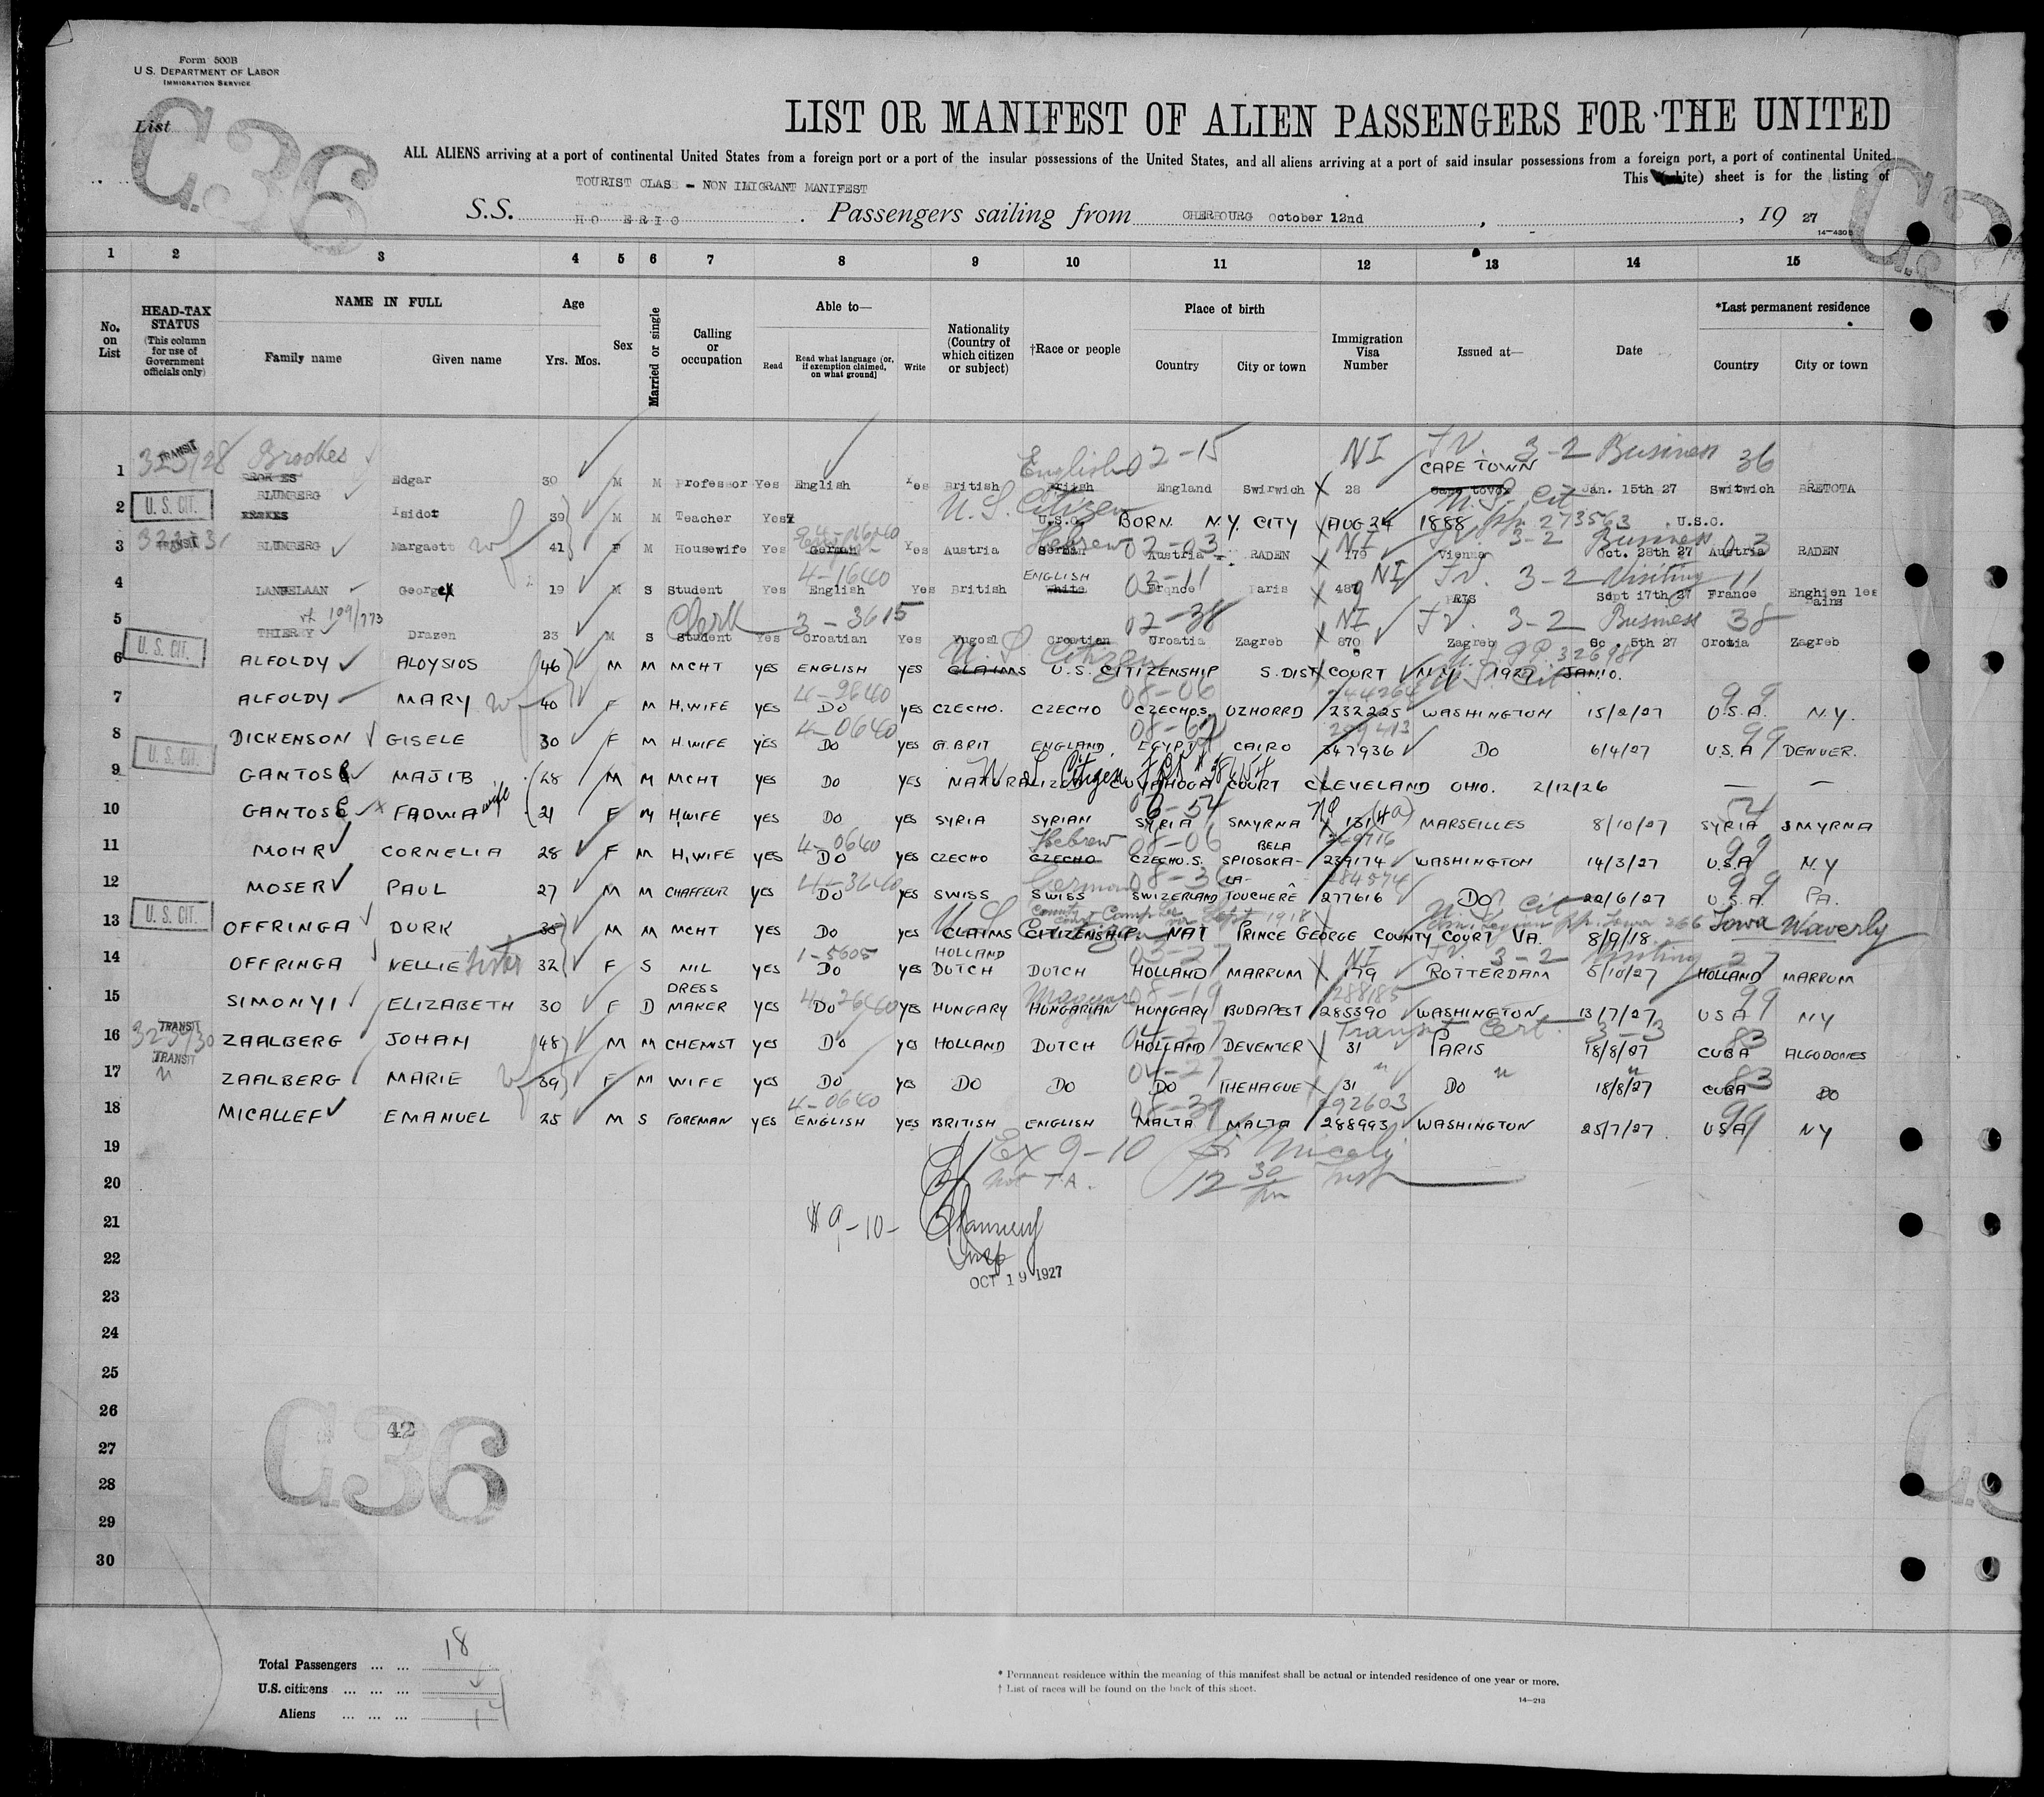 Form 500B
U. S. DEPARTMENT OF LABOR
IMMIGRATION SERVICE
List
C.36
LIST OR MANIFEST OF ALIEN PASSENGERS FOR THE UNITED
ALL ALIENS arriving at a port of continental United States from a foreign port or a port of the insular possessions of the United States, and all aliens arriving at a port of said insular possessions from a foreign port, a port of continental United
This (white) sheet is for the listing of
TOURIST CLASS - NON IMIGRANT MANIFEST
S.S. HO ERIC Passengers sailing from CHERBOURG October 12nd , , 19 27
14-430B
1 2 3 4 5 6 7 8 9 10 11 12 13 14 15
No. on List
HEAD-TAX STATUS (This column for use of Government officials only)
NAME IN FULL Family name Given name
Age Yrs. Mos.
Sex
Married or single
Calling or occupation
Able to— Read Read what language (or, if exemption claimed, on what ground) Write
Nationality (Country of which citizen or subject)
†Race or people
Place of birth Country City or town
Immigration Visa Number
Issued at—
Date
*Last permanent residence Country City or town
TRANSIT 323928 Brookes English 02-15 NI T.V. 3-2 Business 36
CAPE TOWN
1 Edgar 30 M M Professor Yes English Yes British England Swirwich 28 Jan. 15th 27 Switwich BRETOTA
BLUMBERG U.S. Citizen U.S. Cit
2 U. S. CIT. Isidot 39 M M Teacher Yes U.S.C. BORN N.Y. CITY AUG 24 1888 273563 U.S.C.
Hebrew 02-03 NI 3-2 Business 03
3 TRANSIT BLUMBERG Margaett wf 41 F M Housewife Yes German Yes Austria Austria RADEN 179 Vienna Oct. 28th 27 Austria RADEN
4-1640 ENGLISH 03-11 NI T.V. 3-2 Visiting 11
4 LANDELAAN George 19 M S Student Yes English Yes British White France Paris 487 PRIS Sept 17th 27 France Enghien les Bains
109/773 Clerk 3-3615 02-38 NI T.V. 3-2 Business 38
5 THIERRY Drazen 23 M S Student Yes Croatian Yes Yugosl Croatian Croatia Zagreb 870 Zagreb 5th 27 Crotia Zagreb
U.S. Citizen U.S. PP. 326981
6 U. S. CIT. ALFOLDY ALOYSIOS 46 M M MCHT YES ENGLISH YES CLAIMS U.S. CITIZENSHIP S. DIST COURT N.Y. 1927 JAN.10.
4-9640 08-06 244264 99
7 ALFOLDY MARY wf 40 F M H.WIFE YES DO YES CZECHO. CZECHO CZECHO.S. UZHORRD 232225 WASHINGTON 15/2/27 U.S.A. N.Y.
4-0640 99
8 DICKENSON GISELE 30 F M H.WIFE YES DO YES G.BRIT ENGLAND EGYPT CAIRO 347936 DO 6/4/27 U.S.A DENVER.
U.S. Citizen
9 U. S. CIT. GANTOSE MAJIB 28 M M MCHT YES DO YES NATURALIZED CUYAHOGA COURT CLEVELAND OHIO. 2/12/26 — —
10 GANTOSE FADWIA wife 21 F M H.WIFE YES DO YES SYRIA SYRIAN SYRIA SMYRNA 131 (4a) MARSEILLES 8/10/27 SYRIA SMYRNA
4-0640 Hebrew 08-06 BELA 249716 99
11 MOHR CORNELIA 28 F M H.WIFE YES DO YES CZECHO CZECHO CZECHO.S. SPIOSOKA- 239174 WASHINGTON 14/3/27 U.S.A N.Y
4-3640 German 08-36 LA- 284574 99
12 MOSER PAUL 27 M M CHAFFEUR YES DO YES SWISS SWISS SWIZERLAND TOUCHERÊ 277616 DO 22/6/27 U.S.A. PA.
U.S. Citizen County Court Camp Lee Sept 1918 U.S. Cit
13 U. S. CIT. OFFRINGA DURK 35 M M MCHT YES DO YES CLAIMS CITIZENSHIP NAT PRINCE GEORGE COUNTY COURT VA. 8/9/18. Iowa Waverly
1-5605 HOLLAND 03-27 NI T.V. 3-2 Visiting 27
14 OFFRINGA NELLIE Sister 32 F S NIL YES DO YES DUTCH DUTCH HOLLAND MARRUM 179 ROTTERDAM 5/10/27 HOLLAND MARRUM
DRESS 4-2640 Magyar 08-19 288185 99
15 SIMONYI ELIZABETH 30 F D MAKER YES DO YES HUNGARY HUNGARIAN HUNGARY BUDAPEST 285390 WASHINGTON 13/7/27 USA NY
TRANSIT 323930 04-27 Transit Cert. 3-3 83
16 ZAALBERG JOHAN 48 M M CHEMIST YES DO YES HOLLAND DUTCH HOLLAND DEVENTER 31 PARIS 18/8/27 CUBA ALGODONES
TRANSIT 04-27 83
17 " ZAALBERG MARIE wf 39 F M WIFE YES DO YES DO DO DO THEHAGUE 31 DO 18/8/27 CUBA DO
4-0640 08-39 292603 99
18 MICALLEF EMANUEL 25 M S FOREMAN YES ENGLISH YES BRITISH ENGLISH MALTA MALTA 288993 WASHINGTON 25/7/27 USA NY
19 Ex 9-10
20 not T.A. 12 30 pm Insp
21 # 9-10-
22 Insp
OCT 19 1927
23
24
25
26
42
C.36
27
28
29
30
Total Passengers ... ... 18
U.S. citizens ... ... ... 4
Aliens ... ... ... 14
* Permanent residence within the meaning of this manifest shall be actual or intended residence of one year or more.
† List of races will be found on the back of this sheet.
14-213